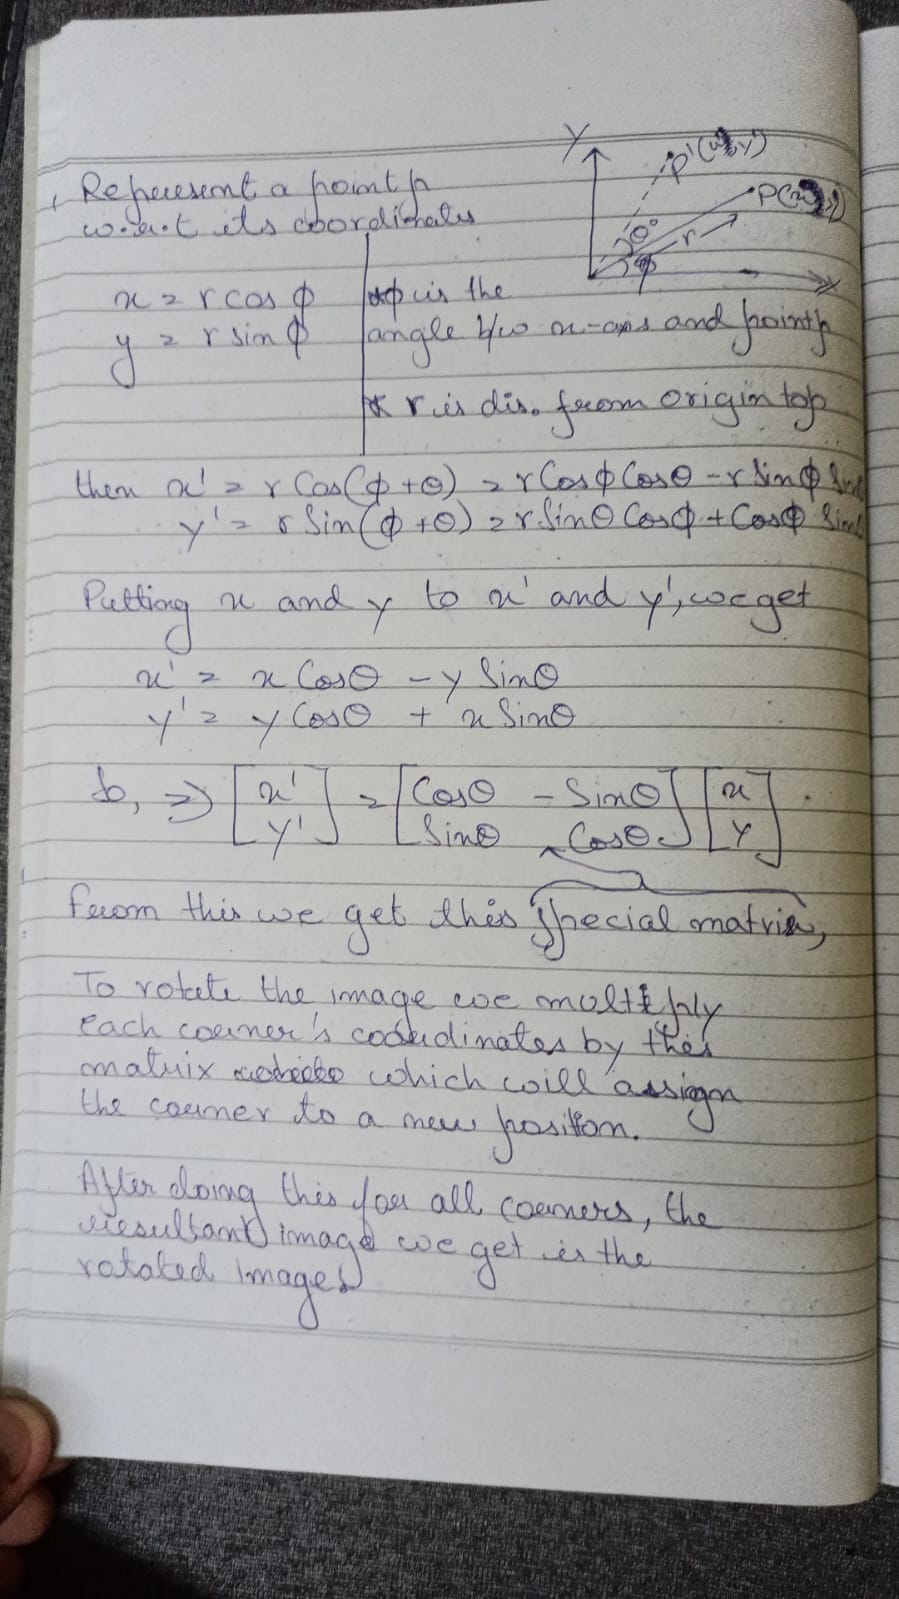 Y
P'(x,y)
Represent a point p
P(x,y)
w.r.t its coordinates
θ°
r
ϕ
x
x = r cos ϕ
* ϕ is the
y = r sin ϕ
angle b/w x-axis and point p
* r is dis. from origin to p
then x' = r Cos(ϕ+θ) = r Cosϕ Cosθ - r Sinϕ Sinθ
y' = r Sin(ϕ+θ) = r Sinθ Cosϕ + Cosϕ Sinθ
Putting x and y to x' and y', we get
x' = x Cosθ - y Sinθ
y' = y Cosθ + x Sinθ
So, ⇒ [x' = [Cosθ - Sinθ] [x]
y'] [Sinθ Cosθ] [y]
From this we get this special matrix,
To rotate the image we multiply
each corner's coordinates by this
matrix which will assign
the corner to a new position.
After doing this for all corners, the
resultant image we get is the
rotated image.